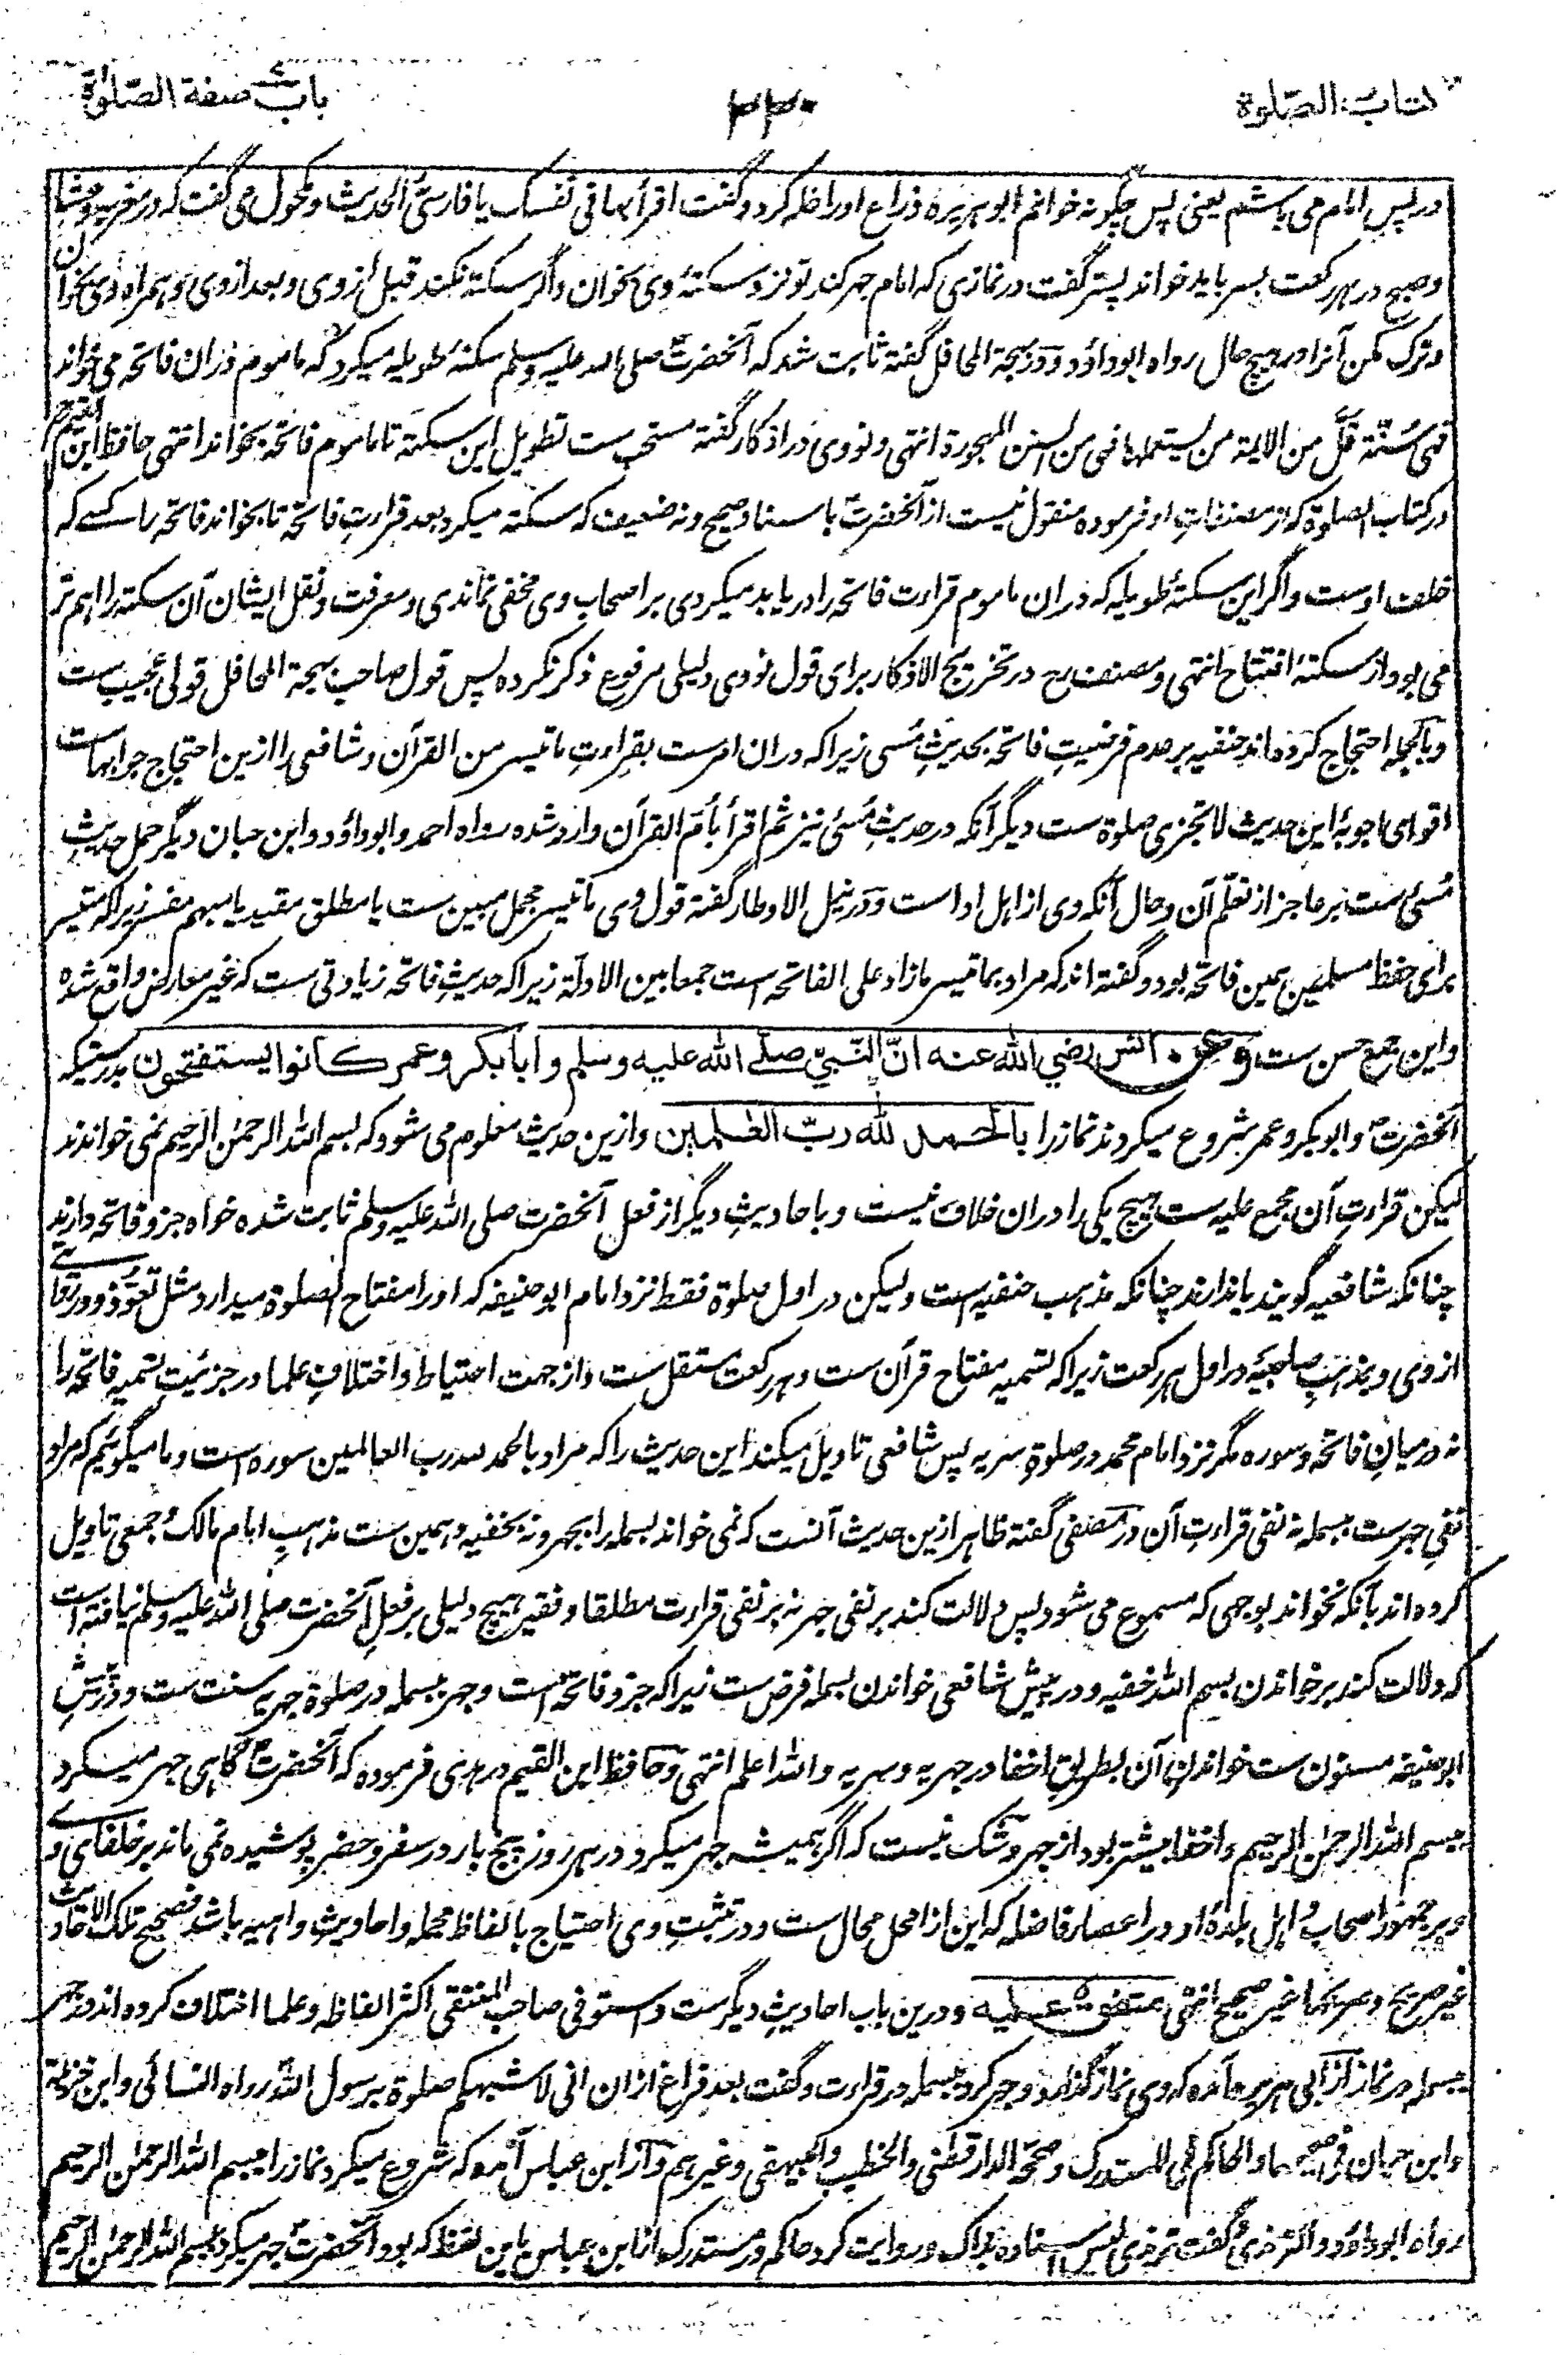 کتاب الصّلوة
۲۲۰
باب صفة الصّلوة
در پس امام می باشم یعنی پس چگونه خوانم ابو ہریرہ ذراع اورا خلہ کرد و گفت اقرأ بہا فی نفسک یا فارسیُّ الحدیث و مکحول می گفت کہ در مغرب و عشا
و صبح در ہر رکعت بسر باید خواند پستر گفت در نمازی کہ امام جہر کند تو نزد سکتۂ وی بخوان و اگر سکتہ نکند قبل از وی و بعد از وی و ہمراہ وی بخوان
و ترک مکن آنرا در ہیچ حال رواہ ابوداؤد و در بہجة المحافل گفتہ ثابت شد کہ آنحضرت صلی اللہ علیہ وسلم سکتۂ طویلہ میکرد کہ ماموم دران فاتحہ می خواند
فہی سُنّة قلَّ من الایمة من یستعملہا فہی من السنن المہجورة انتہی و نووی در اذکار گفتہ مستحب ست تطویل این سکتہ تا ماموم فاتحہ بخواند انتہی حافظ ابن القیم رح
در کتاب الصلوة کہ از مصنفاتِ او فرمودہ منقول نیست از آنحضرت باسناد صحیح و نہ ضعیف کہ سکتہ میکرد بعد قراءتِ فاتحہ تا بخواند فاتحہ را کسے کہ
خلف اوست و اگر این سکتۂ طویلہ کہ دران ماموم قراءت فاتحہ را دریابد میکردی بر اصحاب وی مخفی نماندی و معرفت و نقل ایشان آن سکتہ را اہم تر
می بود از سکتۂ افتتاح انتہی و مصنف رح در تخریج الاذکار برای قول نووی دلیلی مرفوع ذکر نکردہ پس قول صاحب بہجة المحافل قولی عجیب ست
و بالجملہ احتجاج کردہ اند حنفیہ بر عدم فرضیتِ فاتحہ بحدیثِ مُسی زیرا کہ دران امرست بقراءتِ ما تیسر من القرآن و شافعی را ازین احتجاج جوابہاست
اقوای اجوبہ این حدیث لا تجزی صلوة ست دیگر آنکہ در حدیثِ مُسئی نیز ثم اقرأ بأمّ القرآن وارد شدہ رواہ احمد و ابوداؤد و ابن حبان دیگر حمل حدیثِ
مُسئی ست بر عاجز از تعلّم آن و حال آنکہ وی از اہل ادا است و در نیل الاوطار گفتہ قول وی ما تیسر مجمل مبین ست یا مطلق مقید یا مبہم مفسر زیرا کہ متیسر
برای حفظ مسلمین ہمین فاتحہ بود و گفتہ اند کہ مراد بما تیسر ما زاد علی الفاتحہ است جمعا بین الادلّة زیرا کہ حدیثِ فاتحہ زیادتی ست کہ غیر معارض واقع شدہ
و این جمع حسن ست وعن انس رضي الله عنه انّ النّبيّ صلّے الله عليه وسلم وأبابكر وعمر كانوا يستفتحون بدرستیکہ
آنحضرت و ابوبکر و عمر شروع میکردند نماز را بالحمد لله ربّ العٰلمين و ازین حدیث معلوم می شود کہ بسم اللہ الرحمٰن الرحیم نمی خواندند
لیکن قراءتِ آن مجمع علیہ ست ہیچ یکی را دران خلاف نیست و باحادیثِ دیگر از فعل آنحضرت صلی اللہ علیہ وسلم ثابت شدہ خواہ جزو فاتحہ دارند
چنانکہ شافعیہ گویند یا ندارند چنانکہ مذہب حنفیہ است ولیکن در اول صلوة فقط نزد امام ابوحنیفہ کہ اورا مفتاح الصلوة میدارد مثل تعوّذ و در روایتے
از وی و بمذہبِ صاحبیہ در اول ہر رکعت زیرا کہ تسمیہ مفتاح قرآن ست و ہر رکعت مستقل ست و از جہت احتیاط و اختلافِ علما در جزئیتِ تسمیہ فاتحہ را
نہ درمیان فاتحہ و سورہ مگر نزد امام محمد در صلوةِ سریہ پس شافعی تاویل میکند این حدیث را کہ مراد بالحمد للہ رب العالمین سورہ است و ما میگوئیم کہ مراد
نفی جہرست بسملہ نہ نفی قراءتِ آن در مصفی گفتہ ظاہر ازین حدیث آنست کہ نمی خواند بسملہ را بجہر و نہ بخفیہ و ہمین ست مذہبِ امام مالک و جمعی تاویل
کردہ اند بآنکہ نخواند بوجہی کہ مسموع می شود پس دلالت کند بر نفی جہر نہ بر نفی قراءت مطلقا و فقیر ہیچ دلیلی بر فعل آنحضرت صلی اللہ علیہ وسلم نیافتہ است
کہ دلالت کند بر خواندن بسم اللہ خفیہ و در پیش شافعی خواندن بسملہ فرض ست زیرا کہ جزو فاتحہ است و جہر ببسملہ در صلوة جہریہ سنت ست و در پیش
ابوحنیفہ مسنون ست خواندن آن بطریق اخفا در جہریہ و سریہ واللہ اعلم انتہی و حافظ ابن القیم در ہدی فرمودہ کہ آنحضرت گاہی جہر میکرد
ببسم اللہ الرحمٰن الرحیم و اخفا بیشتر بود از جہر و شک نیست کہ اگر ہمیشہ جہر میکرد در ہر روز پنج بار در سفر و حضر پوشیدہ نمی ماند بر خلفای وے
و بر جمہور اصحاب و اہل بلدۂ او در اعصار فاضلہ کہ این از امحل محال ست و در تثبتِ وی احتیاج بالفاظ مجملہ و احادیثِ واہیہ باشد فصحیح تلک الاحادیث
غیر صریح و صریحہا غیر صحیح انتہی متفق عليه و درین باب احادیثِ دیگرست و استوفی صاحب المنتقی اکثر الفاظہ و علما اختلاف کردہ اند در جہر
ببسملہ در نماز از ابی ہریرہ آمدہ کہ وی نماز گذارد و جہر کرد ببسملہ در قراءت و گفت بعد فراغ ازان انی لاشبہکم صلوة برسول اللہ رواہ النسائی و ابن خزیمة
و ابن حبان فی صحیحہما و الحاکم فی المستدرک و صححہ الدارقطنی و الخطیب و البیہقی و غیرہم و از ابن عباس آمدہ کہ شروع میکرد نماز را ببسم اللہ الرحمٰن الرحیم
رواہ ابوداؤد و الترمذی گفت ترمذی لیس اسنادہ بذاک و روایت کرد حاکم در مستدرک از ابن عباس باین لفظ کہ بود آنحضرت جہر میکرد ببسم اللہ الرحمٰن الرحیم